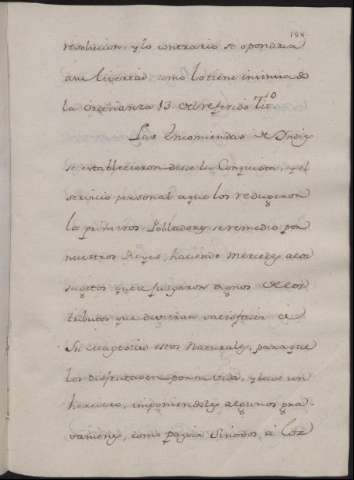 resolucion, y lo contrario se opondria
a su livertad como lo tiene insinuado
la Ordenanza 13. del referido Tit.o
Las Encomiendas de Yndios
se establecieron desde la Conquista, y el
servicio personal a que los redugeron
los primeros Pobladores se remedio por
nuestros Reyes, haciendo mercedes a los
sugetos que se juzgaron dignos de los
tributos que devieran satisfacer a
Su Magestad estos Naturales, para que
los disfrutasen por su vida, y la de un
heredero, imponiendoles algunos gra-
vamenes, como pagar Sinodos, a los